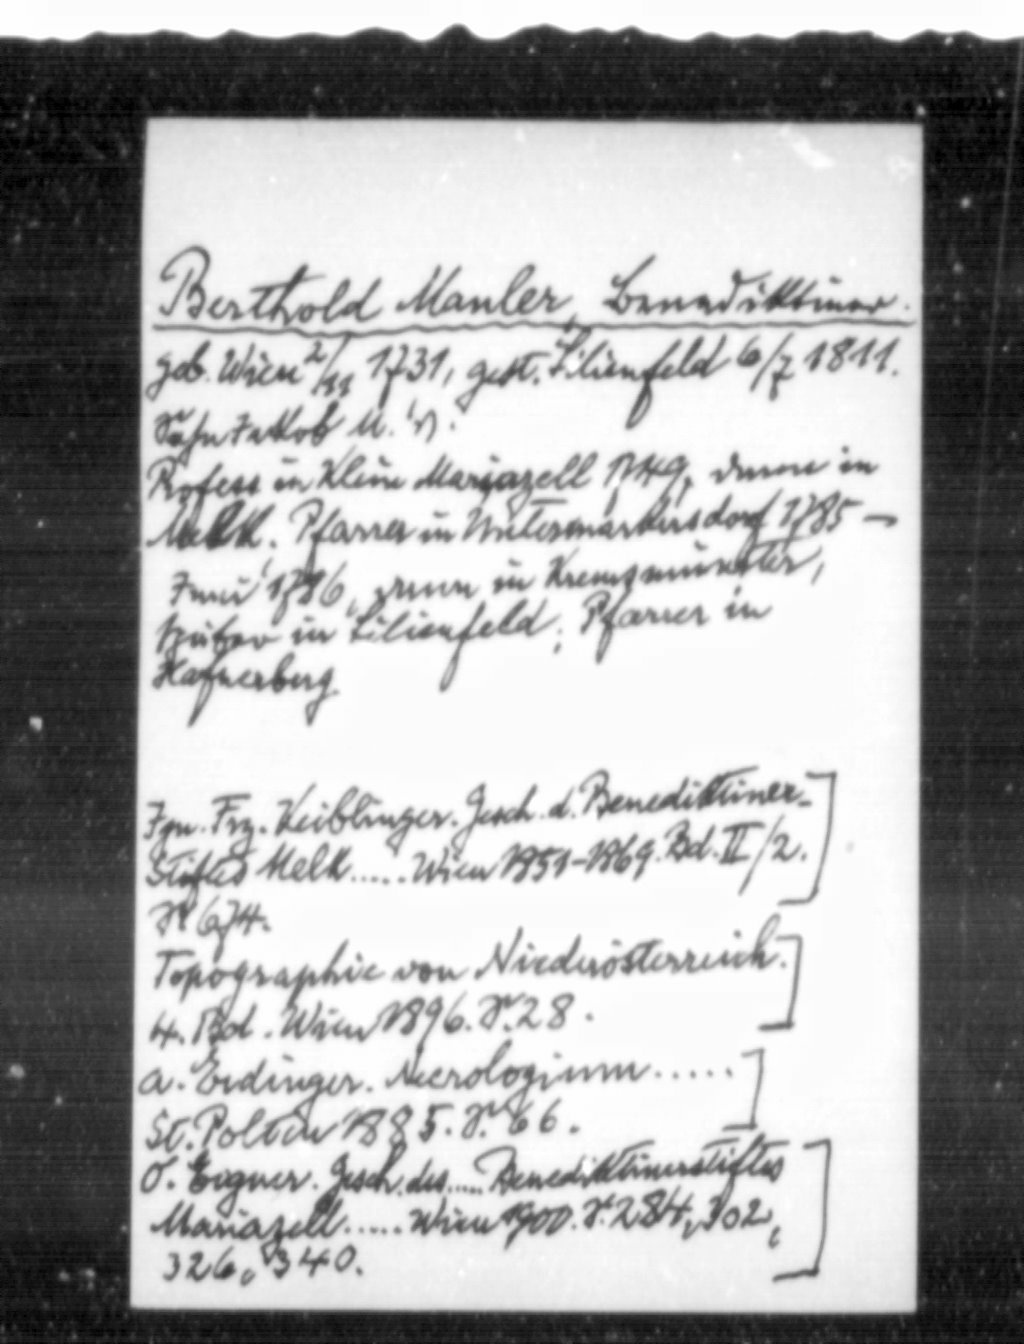 Berthold Manler, Benediktiner.
geb. Wien 2/11 1731, gest. Lilienfeld 6/7 1811.
Sohn Jakob M.'s.
Profess in Klein Mariazell 1749, dann in
Melk. Pfarrer in Untermarkersdorf 1785 –
Juni 1786, dann in Kremsmünster,
später in Lilienfeld, Pfarrer in
Hafnerberg
Ign. Frz. Keiblinger. Gesch. d. Benediktiner-
Stiftes Melk..... Wien 1851-1869. Bd. II/2.
S. 674.
Topographie von Niederösterreich.
4. Bd. Wien 1896. S. 28.
A. Erdinger. Necrologium.....
St. Pölten 1885. S. 66.
O. Eigner. Gesch. des..... Benediktinerstiftes
Mariazell..... Wien 1900. S. 284, 302,
326, 340.